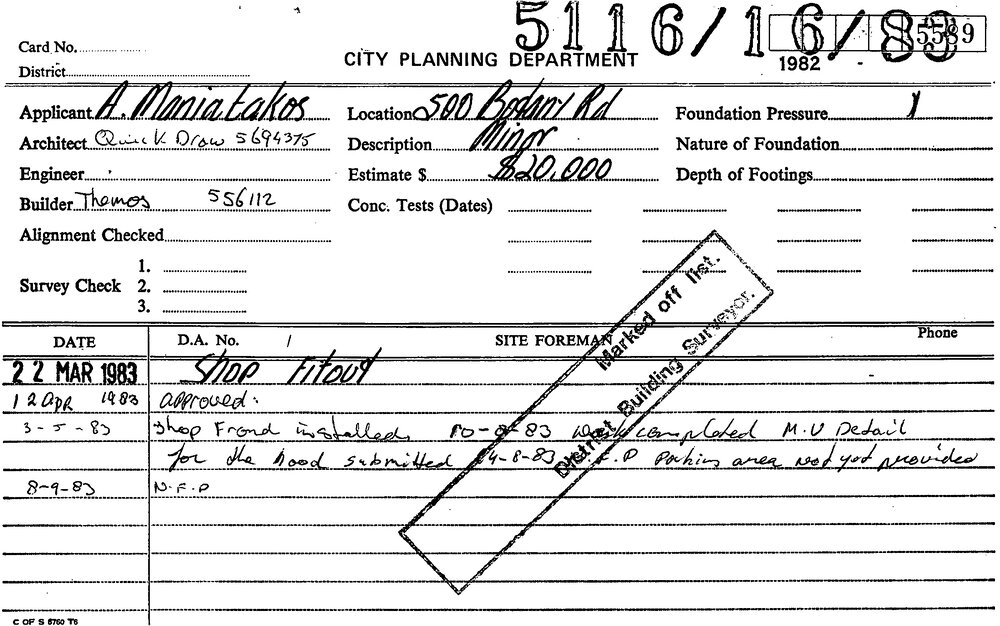 5116/16/83
5589
Card No.
CITY PLANNING DEPARTMENT
1982
District
Applicant A. Maniatakos
Location 500 Botany Rd
Foundation Pressure
Architect Quick Draw 5694375
Description Minor
Nature of Foundation
Engineer
Estimate $ $20,000
Depth of Footings
Builder Themos 556112
Conc. Tests (Dates)
Alignment Checked
Survey Check
1.
2.
3.
Marked off list.
District Building Surveyor.
DATE
D.A. No. /
SITE FOREMAN
Phone
22 MAR 1983 Shop Fitout
12 Apr 1983 approved.
3-5-83 Shop Frond installed, 10-8-83 completed M.V Detail
for the hood submitted 24-8-83 F.P Parking area not yet provided
8-9-83 N.F.P
C OF S 6760 T6